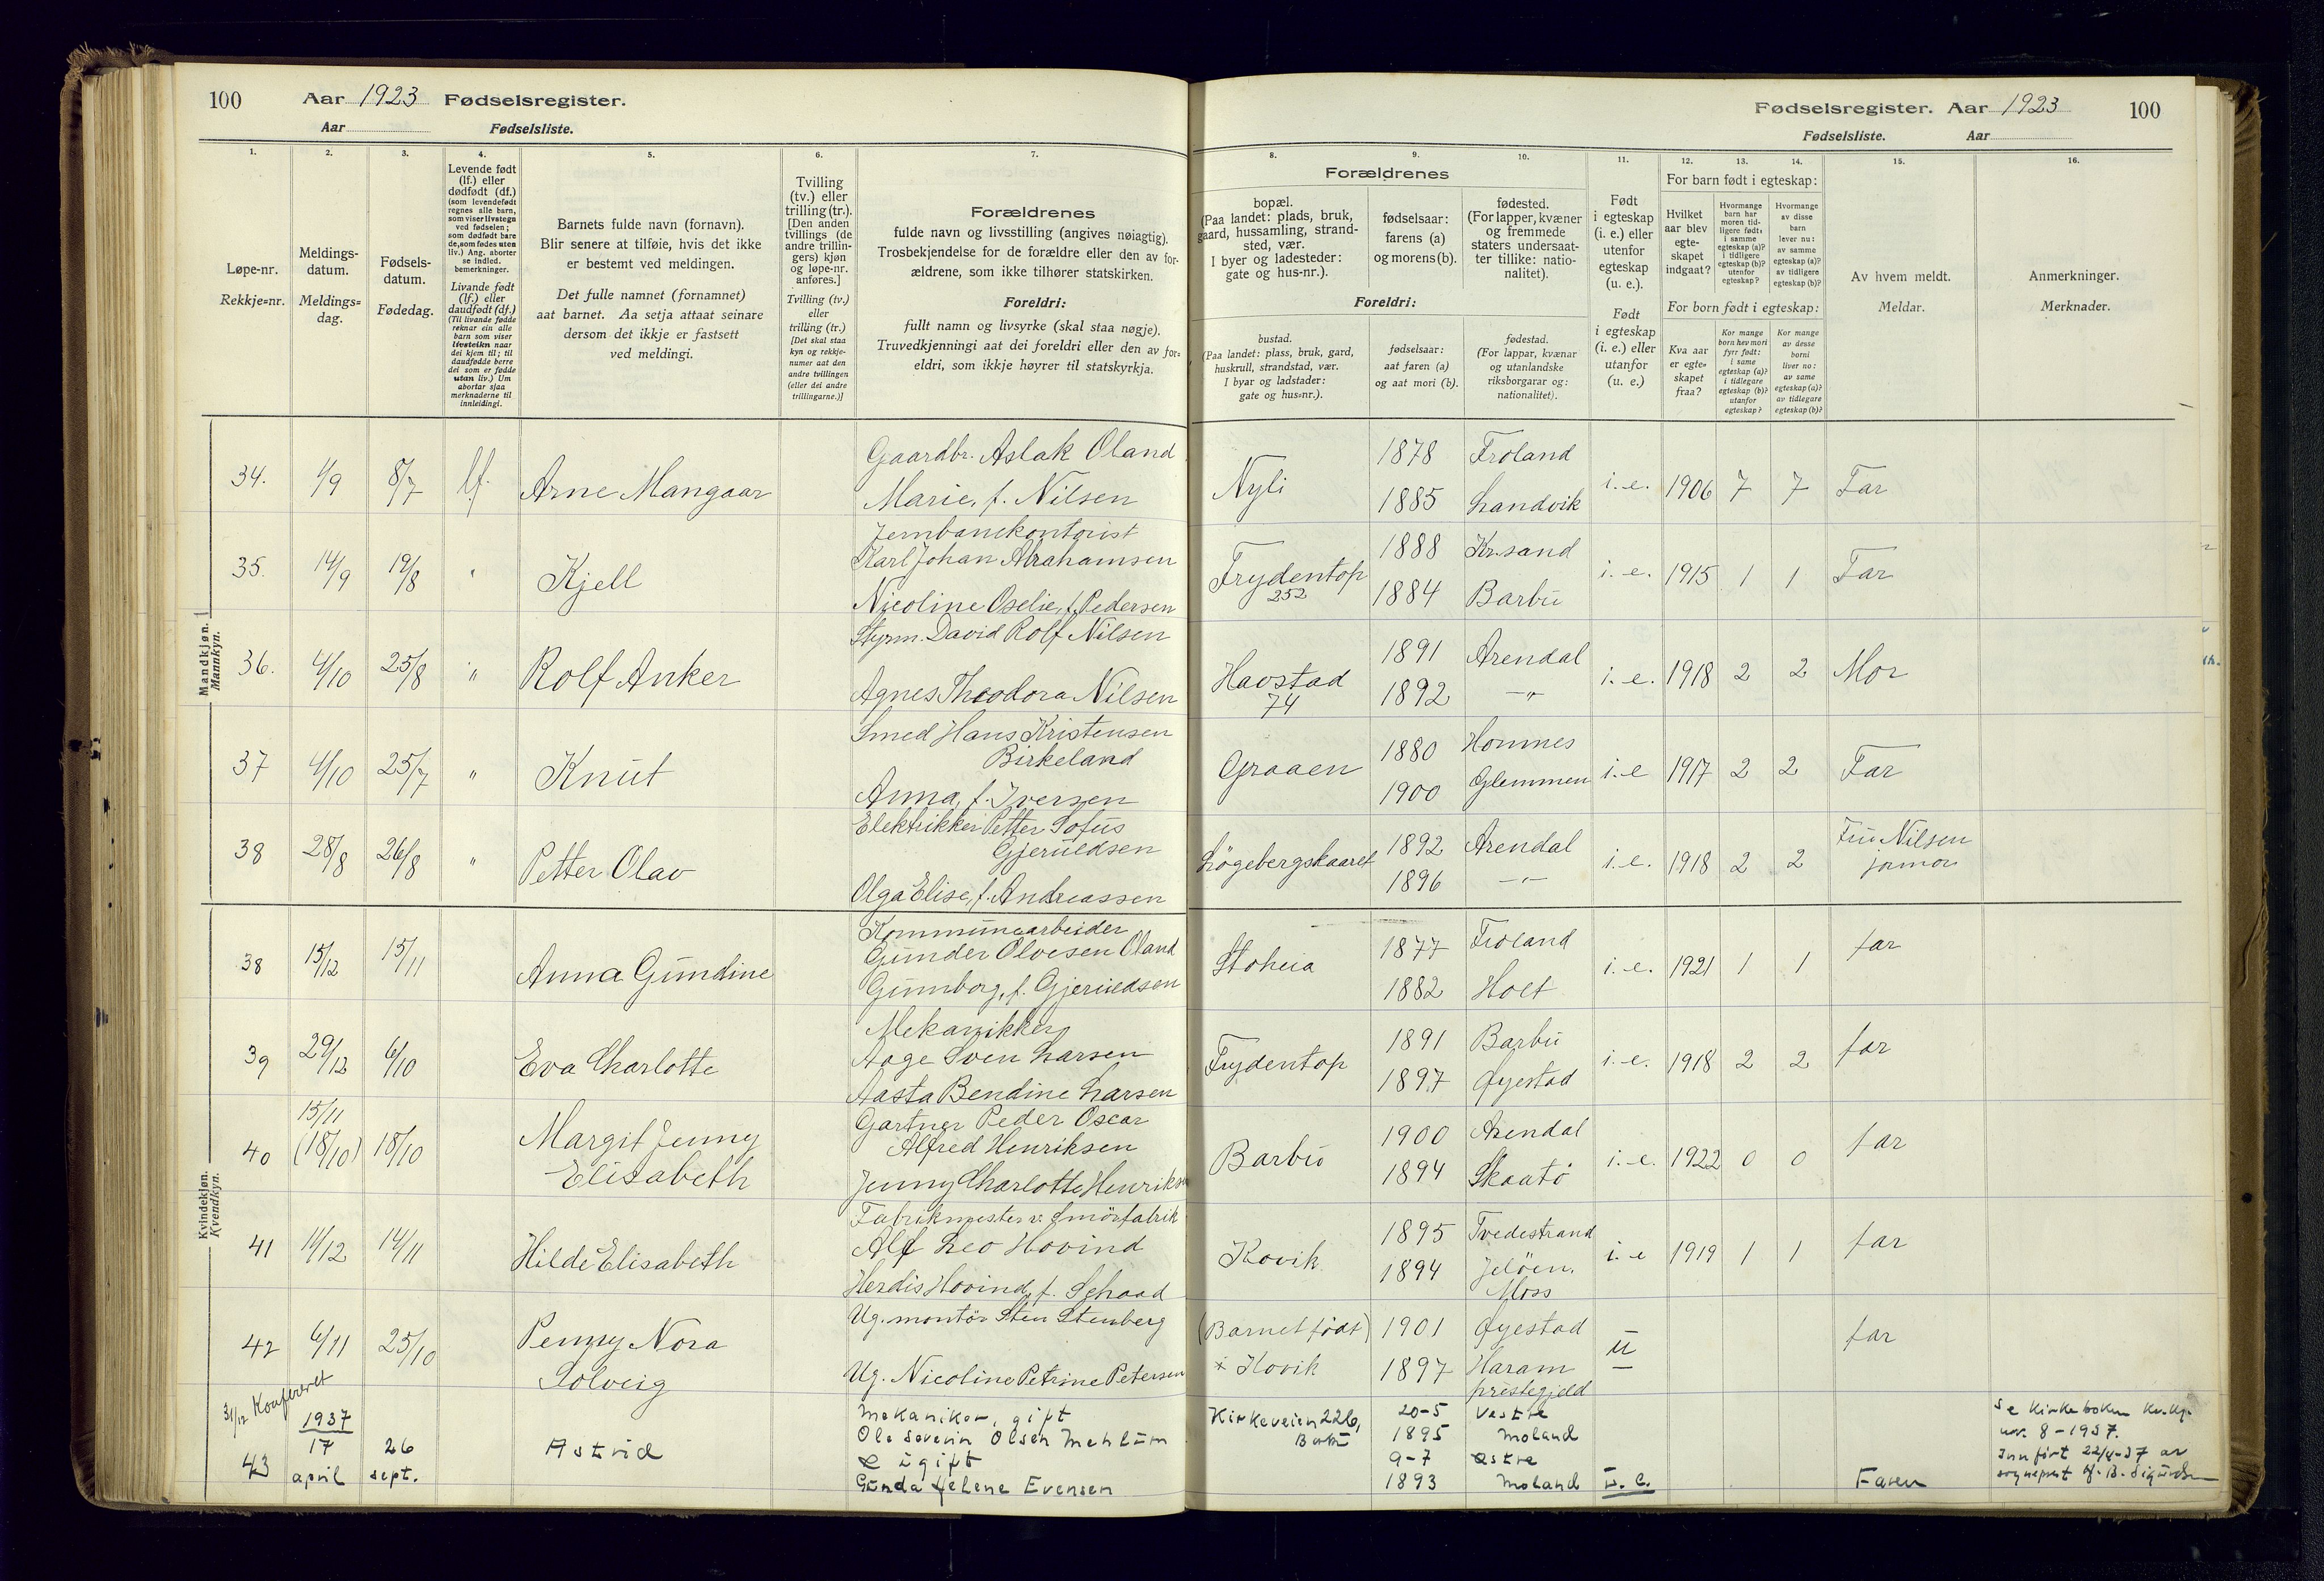 100 Aar 1923 Fødselsregister.
Aar Fødselsliste.
Fødselsregister. Aar 1923 100
Fødselsliste. Aar
1. 2. 3. 4. 5. 6. 7.
8. 9. 10. 11. 12. 13. 14. 15. 16.
Løpe-nr.
Rekkje=nr.
Meldings-
datum.
Meldings=
dag.
Fødsels-
datum.
Fødedag.
Levende født
(lf.) eller
dødfødt (df.)
(som levendefødt
regnes alle barn,
som viser livstegn
ved fødselen;
som dødfødt bare
de, som fødes uten
liv.) Ang. aborter
se indled.
bemerkninger.
Livande født
(lf.) eller
daudfødt (df.)
(Til livande fødde
reknar ein alle
barn som viser
livsteikn naar
dei kjem til; til
daudfødde berre
dei som er fødde
utan liv.) Um
abortar sjaa
merknaderne til
innleidingi.
Barnets fulde navn (fornavn).
Blir senere at tilføie, hvis det ikke
er bestemt ved meldingen.
Det fulle namnet (fornamnet)
aat barnet. Aa setja attaat seinare
dersom det ikkje er fastsett
ved meldingi.
Tvilling
(tv.) eller
trilling (tr.).
[Den anden
tvillings (de
andre trillin-
gers) kjøn
og løpe-nr.
anføres.]
Tvilling (tv.)
eller
trilling (tr.)
[Det skal staa
kyn og rekkje-
numer aat den
andre tvillingen
(eller dei andre
trillingarne.)]
Forældrenes
fulde navn og livsstilling (angives nøiagtig).
Trosbekjendelse for de forældre eller den av for-
ældrene, som ikke tilhører statskirken.
Foreldri:
fullt namn og livsyrke (skal staa nøgje).
Truvedkjenningi aat dei foreldri eller den av for=
eldri, som ikkje høyrer til statskyrkja.
Forældrenes
bopæl.
(Paa landet: plads, bruk,
gaard, hussamling, strand-
sted, vær.
I byer og ladesteder:
gate og hus-nr.).
fødselsaar:
farens (a)
og morens (b).
fødested.
(For lapper, kvæner
og fremmede
staters undersaat-
ter tillike: natio-
nalitet).
Foreldri:
bustad.
(Paa landet: plass, bruk, gard,
huskrull, strandstad, vær.
I byar og ladstader:
gate og hus=nr.).
fødselsaar:
aat faren (a)
og aat mori (b).
fødestad.
(For lappar, kvænar
og utanlandske
riksborgarar og:
nationalitet).
Født
i egteskap
(i. e.) eller
utenfor
egteskap
(u. e.).
Født
i egteskap
(i. e.) eller
utanfor
(u. e.)
For barn født i egteskap:
Hvilket
aar blev
egte-
skapet
indgaat?
Hvormange
barn har
moren tid-
ligere født:
i samme
egteskap (a)?
i tidligere
egteskap (b)?
utenfor
egteskap?
Hvormange
av disse
barn
lever nu:
av samme
egteskap (a)?
av tidligere
egteskap (b)?
For born født i egteskap:
Kva aar
er egte-
skapet
fraa?
Kor mange
born hev mori
fyrr født:
i same
egteskap (a)?
i tidlegare
egteskap (b)?
utanfor
egteskap?
Kor mange
av desse
borni
liver no:
av same
egteskap (a)?
av tidlegare
egteskap (b)?
Av hvem meldt.
Meldar.
Anmerkninger.
Merknader.
Mandkjøn.
Mannkyn.
Gaardbr. Aslak Oland 1878 Froland
34. 1/9 8/7 lf. Arne Mangaar Marie, f. Nilsen Nyli 1885 Landvik i. e. 1906 7 7 Far
Jernbanekontorist
Karl Johan Abrahamsen 1888 Kr.sand
35. 14/9 19/8 " Kjell Frydentop i. e. 1915 1 1 Far
Nicoline Oselie, f. Pedersen 252 1884 Barbu
Styrm. David Rolf Nilsen 1891 Arendal
36. 4/10 25/8 " Rolf Anker Havstad i. e. 1918 2 2 Mor
Agnes Theodora Nilsen 74 1892 —"—
Smed Hans Kristensen 1880 Hommes
Birkeland
37 4/10 25/7 " Knut Graaen i. e 1917 2 2 Far
Anna, f. Iversen 1900 Glemmen
Elektrikker Petter Sofus 1892 Arendal Fru Nilsen
Gjeruldsen jormor
38 28/8 26/8 " Petter Olav Løgebergskaaret i. e. 1918 2 2
Olga Elise, f. Andreassen 1896 —"—
Kvindekjøn.
Kvendkyn.
Kommunearbeider
Gunder Olvesen Oland 1877 Froland far
38 15/12 15/11 Anna Gundine Stoheia i. e. 1921 1 1
Gunnborg, f. Gjeruldsen 1882 Holt
Mekanikker
Aage Sven Larsen 1891 Barbu
39 29/12 6/10 Eva Charlotte Frydentop i. e. 1918 2 2 far
Aasta Bendine Larsen 1897 Øyestad
15/11 Gartner Peder Oscar
40 (18/10) 18/10 Margit Jenny Alfred Henriksen 1900 Arendal far
Elisabeth Barbu i. e. 1922 0 0
Jenny Charlotte Henriks 1894 Skaatø
Fabrikmester v. Smörfabrik
Alf Leo Hovind 1895 Tvedestrand
41 11/12 14/11 Hilde Elisabeth Kovik i. e 1919 1 1 far
Herdis Hovind, f. Schaad 1894 Jelöen,
Moss
Ug. montör Sten Stenberg (Barnet født) 1901 Øyestad
42 6/11 25/10 Penny Nora u far
Solveig Ug. Nicoline Petrine Petersen i Kovik 1897 Haram
prestegjeld
31/12 Konfereret
1937 Mekaniker, gift Kirkeveien 226, 20-5 Vestre
17 26 Astrid Ole Severin Olsen Mehlum Barbu 1895 Moland
43 april sept. & ugift 9-7 Østre
Gunda Helene Evensen 1893 Moland u. e. Faren
Se kirkeboken Kv.kj.
nr. 8 - 1937.
Innført 22/4-37 av
sogneprest